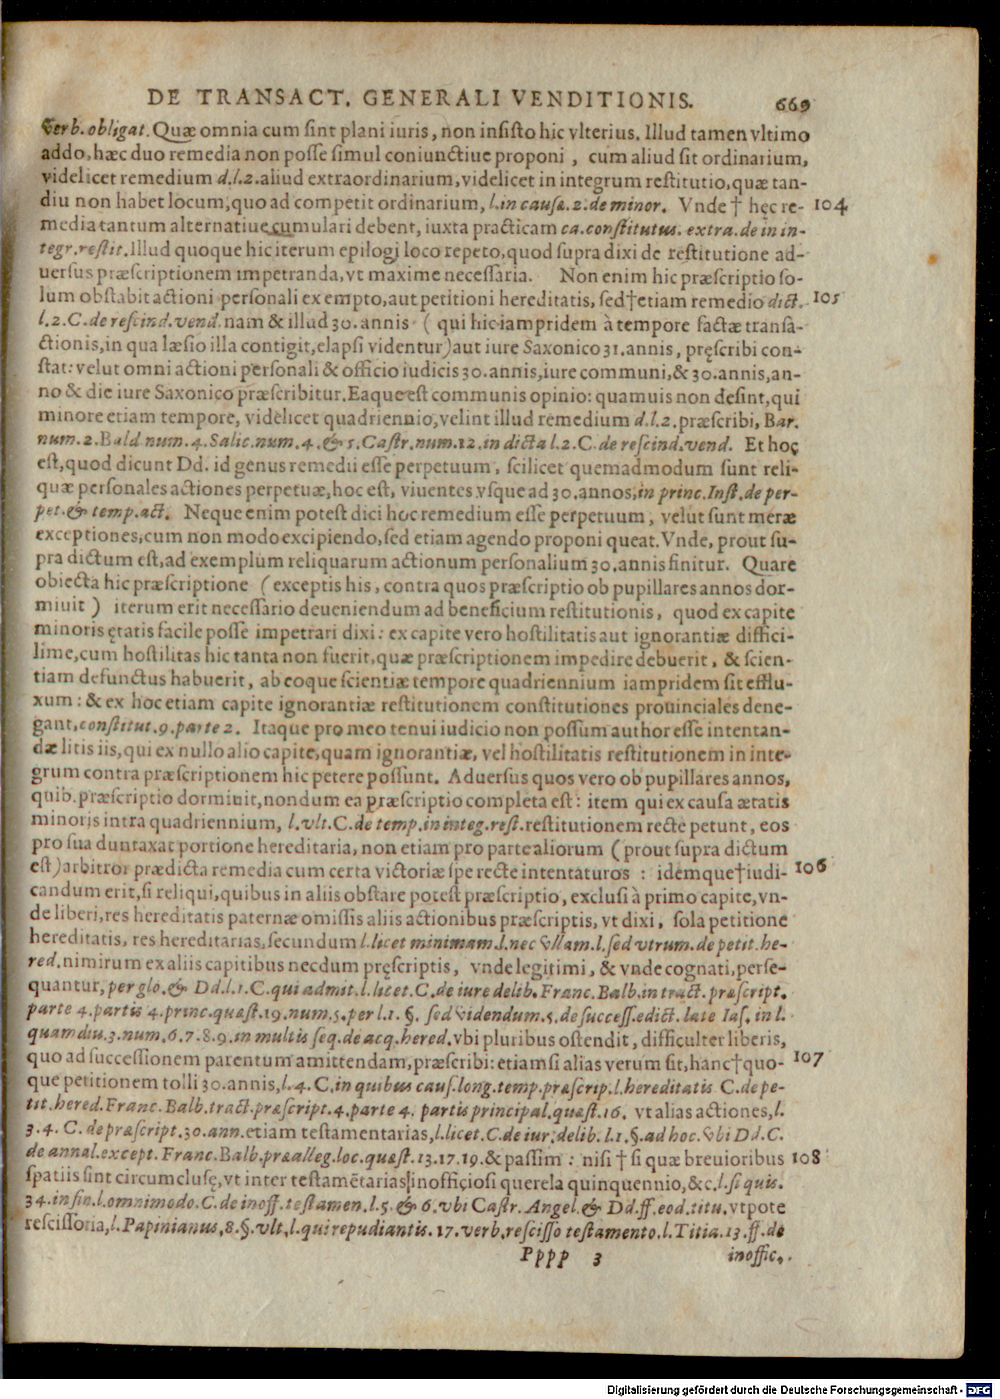 DE TRANSACT. GENERALI VENDITIONIS. 669
verb. obligat. Quæ omnia cum sint plani iuris, non insisto hic vlterius. Illud tamen vltimo
addo, hæc duo remedia non posse simul coniunctiue proponi, cum aliud sit ordinarium,
videlicet remedium d.l.2. aliud extraordinarium, videlicet in integrum restitutio, quæ tan-
diu non habet locum, quo ad competit ordinarium, l. in causæ. 2. de minor. Vnde † hęc re- 104
media tantum alternatiue cumulari debent, iuxta practicam ca. constitutus. extra. de in in-
tegr. restit. Illud quoque hic iterum epilogi loco repeto, quod supra dixi de restitutione ad-
uersus præscriptionem impetranda, vt maxime necessaria. Non enim hic præscriptio so-
lum obstabit actioni personali ex empto, aut petitioni hereditatis, sed † etiam remedio dict. 105
l. 2. C. de rescind. vend. nam & illud 30. annis ( qui hic iampridem à tempore factæ transa-
ctionis, in qua læsio illa contigit, elapsi videntur) aut iure Saxonico 31. annis, pręscribi con-
stat: velut omni actioni personali & officio iudicis 30. annis, iure communi, & 30. annis, an-
no & die iure Saxonico præscribitur. Eaque est communis opinio: quamuis non desint, qui
minore etiam tempore, videlicet quadriennio, velint illud remedium d.l.2. præscribi, Bar.
num. 2. Bald num. 4. Salic. num. 4. & 5. Castr. num. 12. in dicta l. 2. C. de rescind. vend. Et hoc
est, quod dicunt Dd. id genus remedii esse perpetuum, scilicet quemadmodum sunt reli-
quæ personales actiones perpetuæ, hoc est, viuentes vsque ad 30. annos, in princ. Inst. de per-
pet. & temp. act. Neque enim potest dici hoc remedium esse perpetuum, velut sunt meræ
exceptiones, cum non modo excipiendo, sed etiam agendo proponi queat. Vnde, prout su-
pra dictum est, ad exemplum reliquarum actionum personalium 30. annis finitur. Quare
obiecta hic præscriptione ( exceptis his, contra quos præscriptio ob pupillares annos dor-
miuit ) iterum erit necessario deueniendum ad beneficium restitutionis, quod ex capite
minoris ętatis facile posse impetrari dixi: ex capite vero hostilitatis aut ignorantiæ diffici-
lime, cum hostilitas hic tanta non fuerit, quæ præscriptionem impedire debuerit, & scien-
tiam defunctus habuerit, ab eoque scientiæ tempore quadriennium iampridem sit efflu-
xum: & ex hoc etiam capite ignorantiæ restitutionem constitutiones prouinciales dene-
gant, constitut. 9. parte 2. Itaque pro meo tenui iudicio non possum author esse intentan-
dæ litis iis, qui ex nullo alio capite, quam ignorantiæ, vel hostilitatis restitutionem in inte-
grum contra præscriptionem hic petere possunt. Aduersus quos vero ob pupillares annos,
quib. præscriptio dormiuit, nondum ea præscriptio completa est: item qui ex causa ætatis
minoris intra quadriennium, l. vlt. C. de temp. in integ. rest. restitutionem recte petunt, eos
pro sua duntaxat portione hereditaria, non etiam pro parte aliorum ( prout supra dictum
est) arbitror prædicta remedia cum certa victoriæ spe recte intentaturos : idemque † iudi- 106
candum erit, si reliqui, quibus in aliis obstare potest præscriptio, exclusi à primo capite, vn-
de liberi, res hereditatis paternæ omissis aliis actionibus præscriptis, vt dixi, sola petitione
hereditatis, res hereditarias, secundum l. licet minimam. l. nec vllam. l. sed vtrum. de petit. he-
red. nimirum ex aliis capitibus necdum pręscriptis, vnde legitimi, & vnde cognati, perse-
quantur, per glo. & Dd. l. 1. C. qui admit. l. licet. C. de iure delib. Franc. Balb. in tract. præscript.
parte 4. partis 4. princ. quæst. 19. num. 5. per l. 1. §. sed videndum. 5. de success. edict. late Ias. in l.
quamdiu. 3. num. 6. 7. 8. 9. in multis seq. de acq. hered. vbi pluribus ostendit, difficulter liberis,
quo ad successionem parentum amittendam, præscribi: etiamsi alias verum sit, hanc † quo- 107
que petitionem tolli 30. annis, l. 4. C. in quibus caus. long. temp. præscrip. l. hereditatis C. de pe-
tit. hered. Franc. Balb. tract. præscript. 4. parte 4. partis principal. quæst. 16. vt alias actiones, l.
3. 4. C. de præscript. 30. ann. etiam testamentarias, l. licet. C. de iur: delib. l. 1. §. ad hoc. vbi Dd. C.
de annal. except. Franc. Balb. præalleg. loc. quæst. 13. 17. 19. & passim : nisi † si quæ breuioribus 108
spatiis sint circumclusę, vt inter testamētarias inofficiosi querela quinquennio, &c. l. si quis.
34. in fin. l. omnimodo. C. de inoff. testamen. l. 5. & 6. vbi Castr. Angel. & Dd. ff. eod. titu. vtpote
rescissoria, l. Papinianus, 8. §. vlt. l. qui repudiantis. 17. verb. rescisso testamento. l. Titia. 13. ff. de
Pppp 3 inoffic.
Digitalisierung gefördert durch die Deutsche Forschungsgemeinschaft - DFG